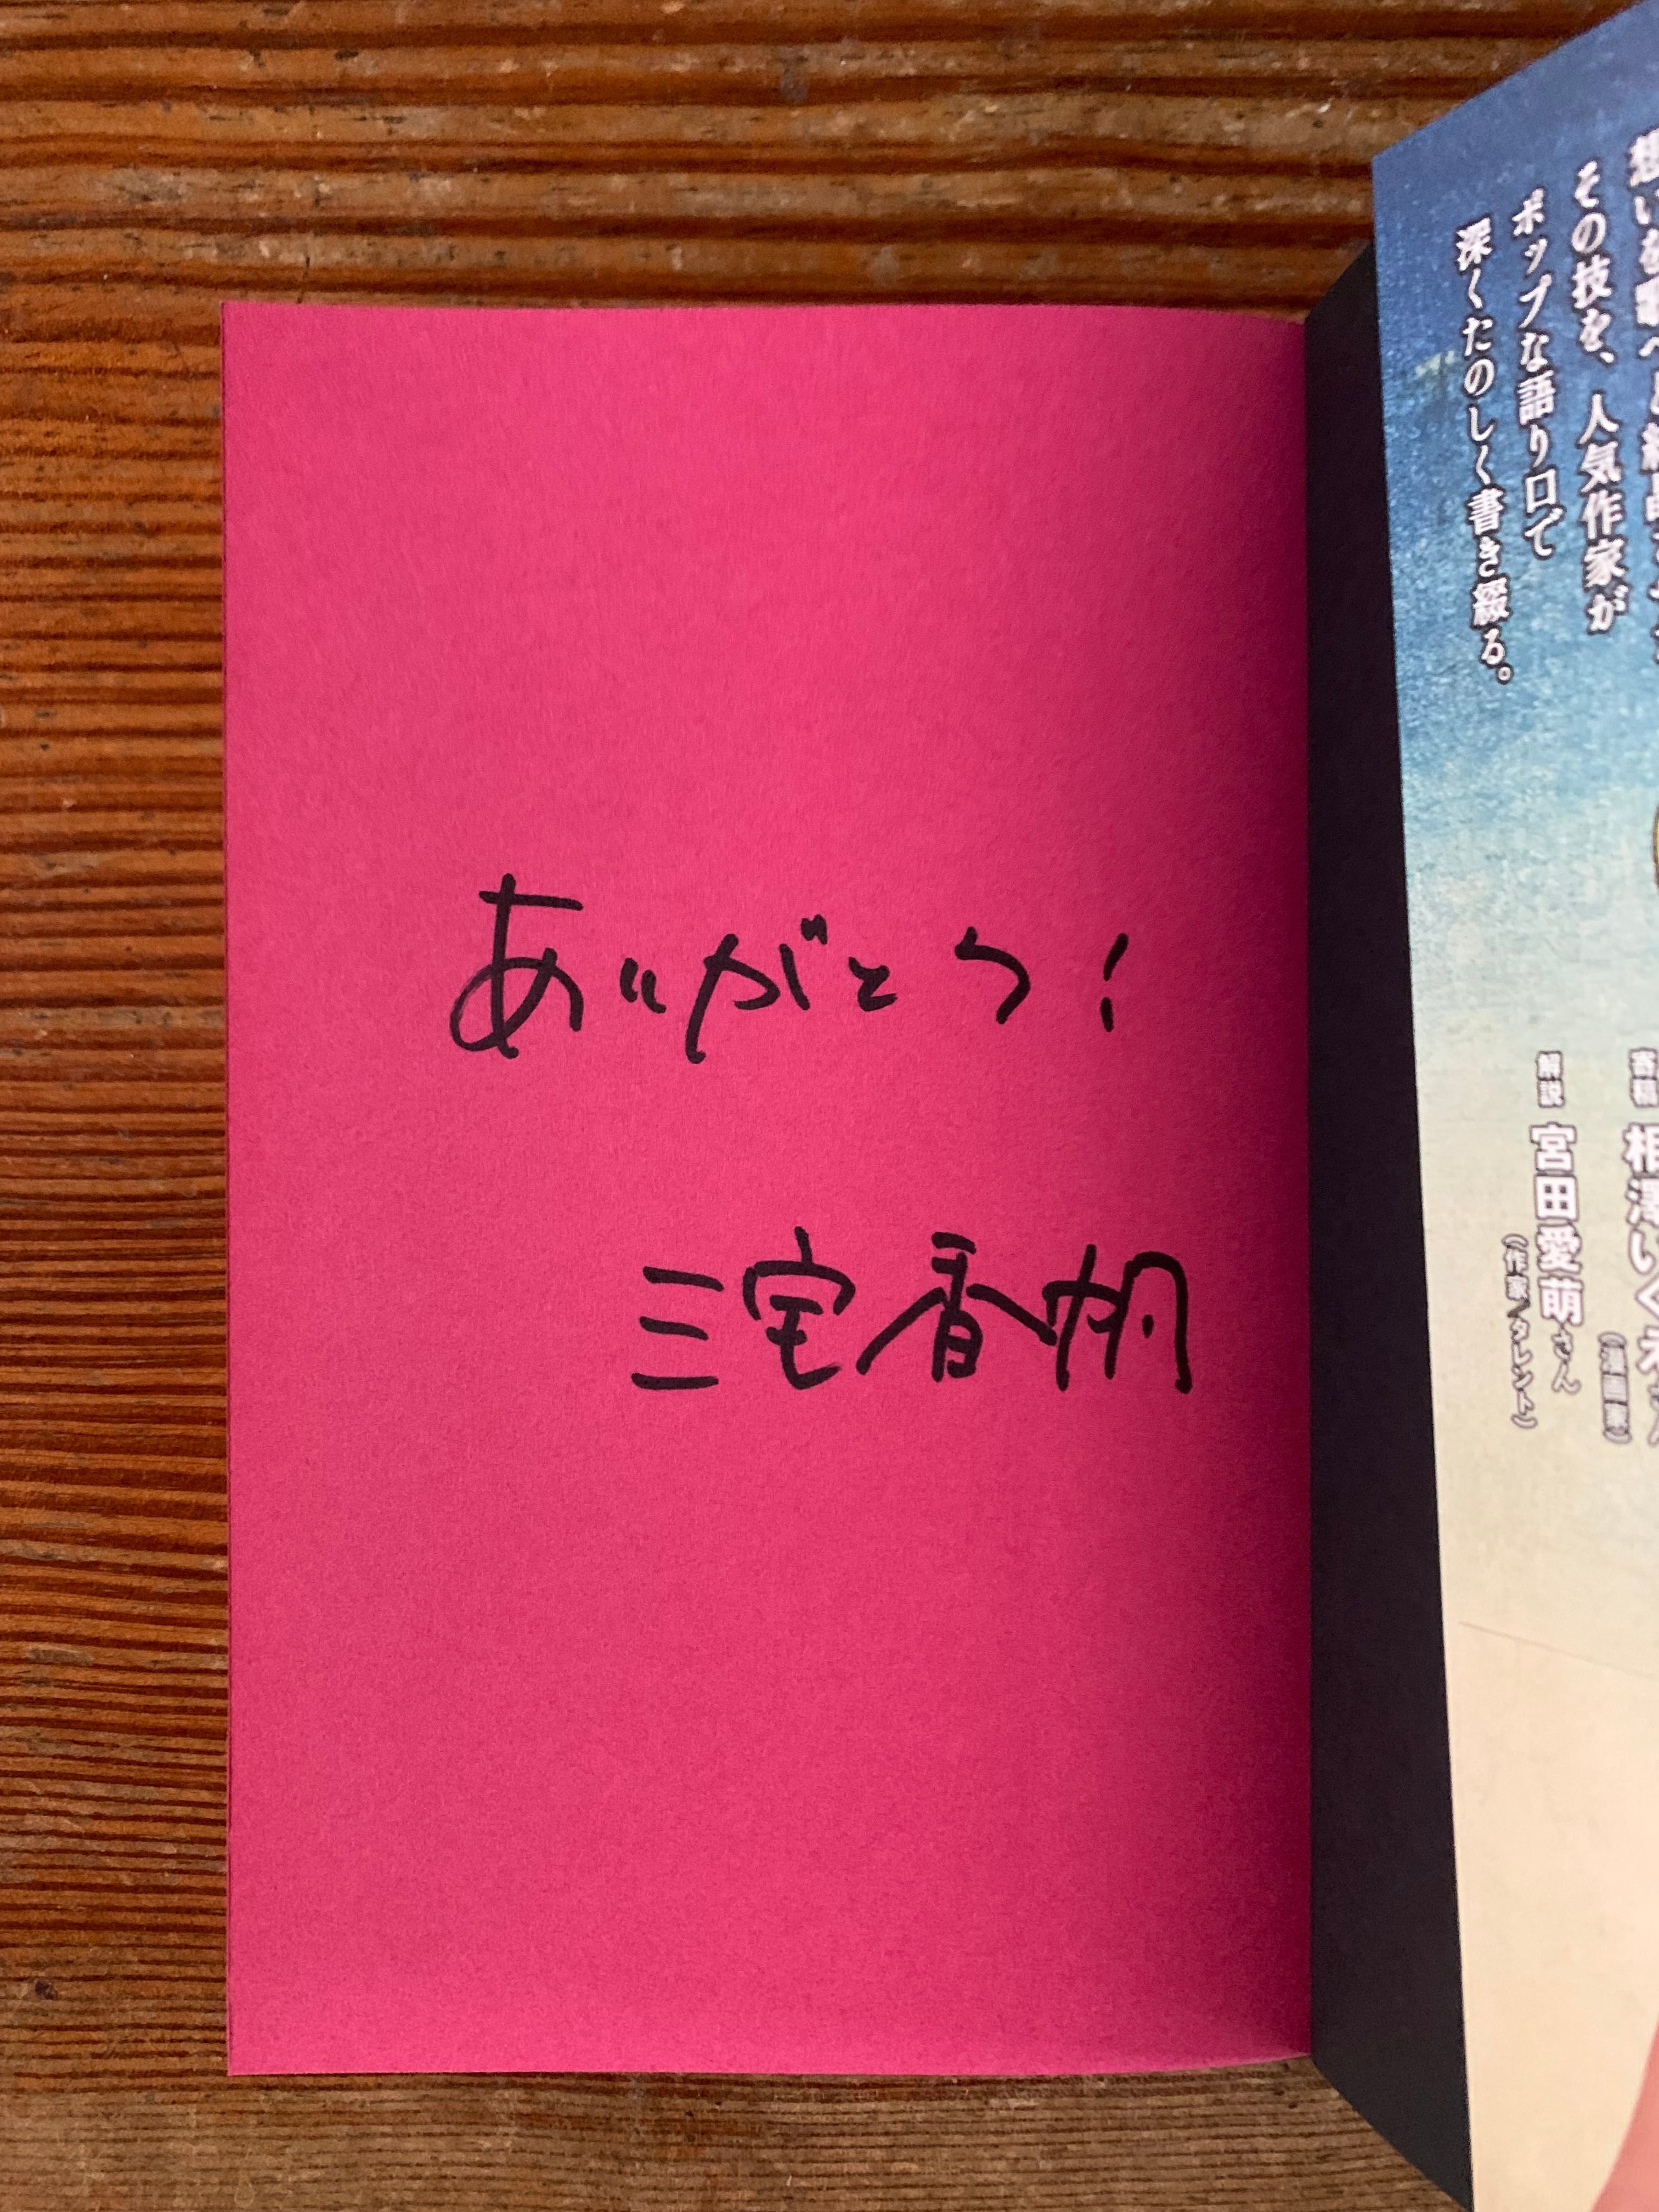 ありがとう!
三宅香帆
その技を、人気作家が
ポップな語り口で
深くたのしく書き綴る。
寄稿
相澤いくえさん
(漫画家)
解説
宮田愛萌さん
(作家/タレント)